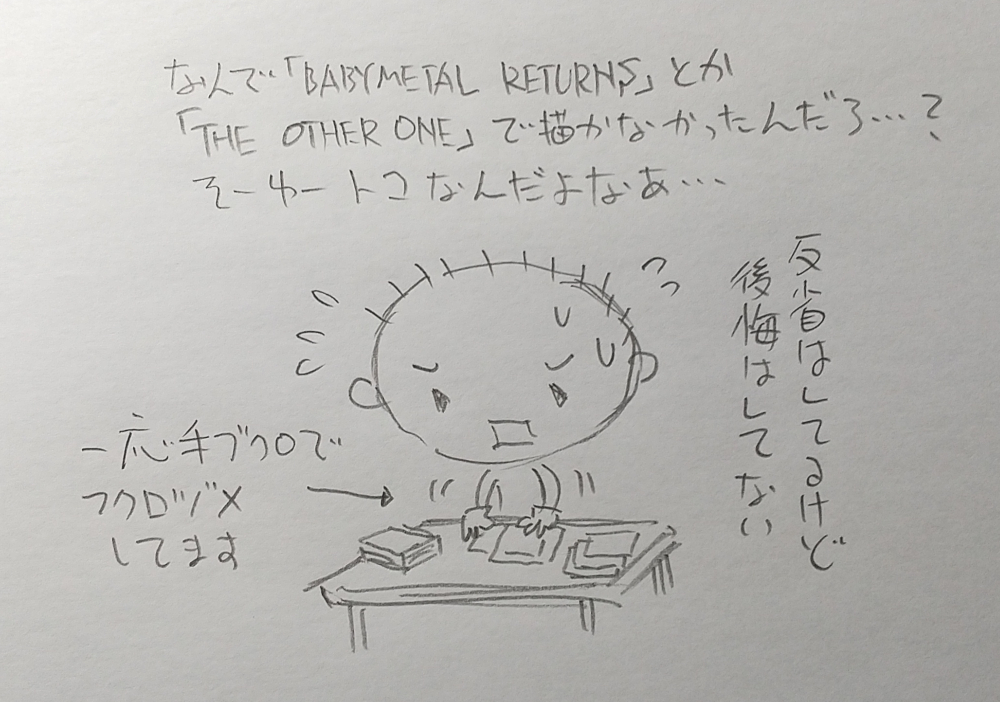 なんで「BABYMETAL RETURNS」とか
「THE OTHER ONE」で描かなかったんだろ…?
そーゆートコなんだよなあ…
反省はしてるけど
後悔はしてない
一応手ブクロで
フクロヅメ
してます